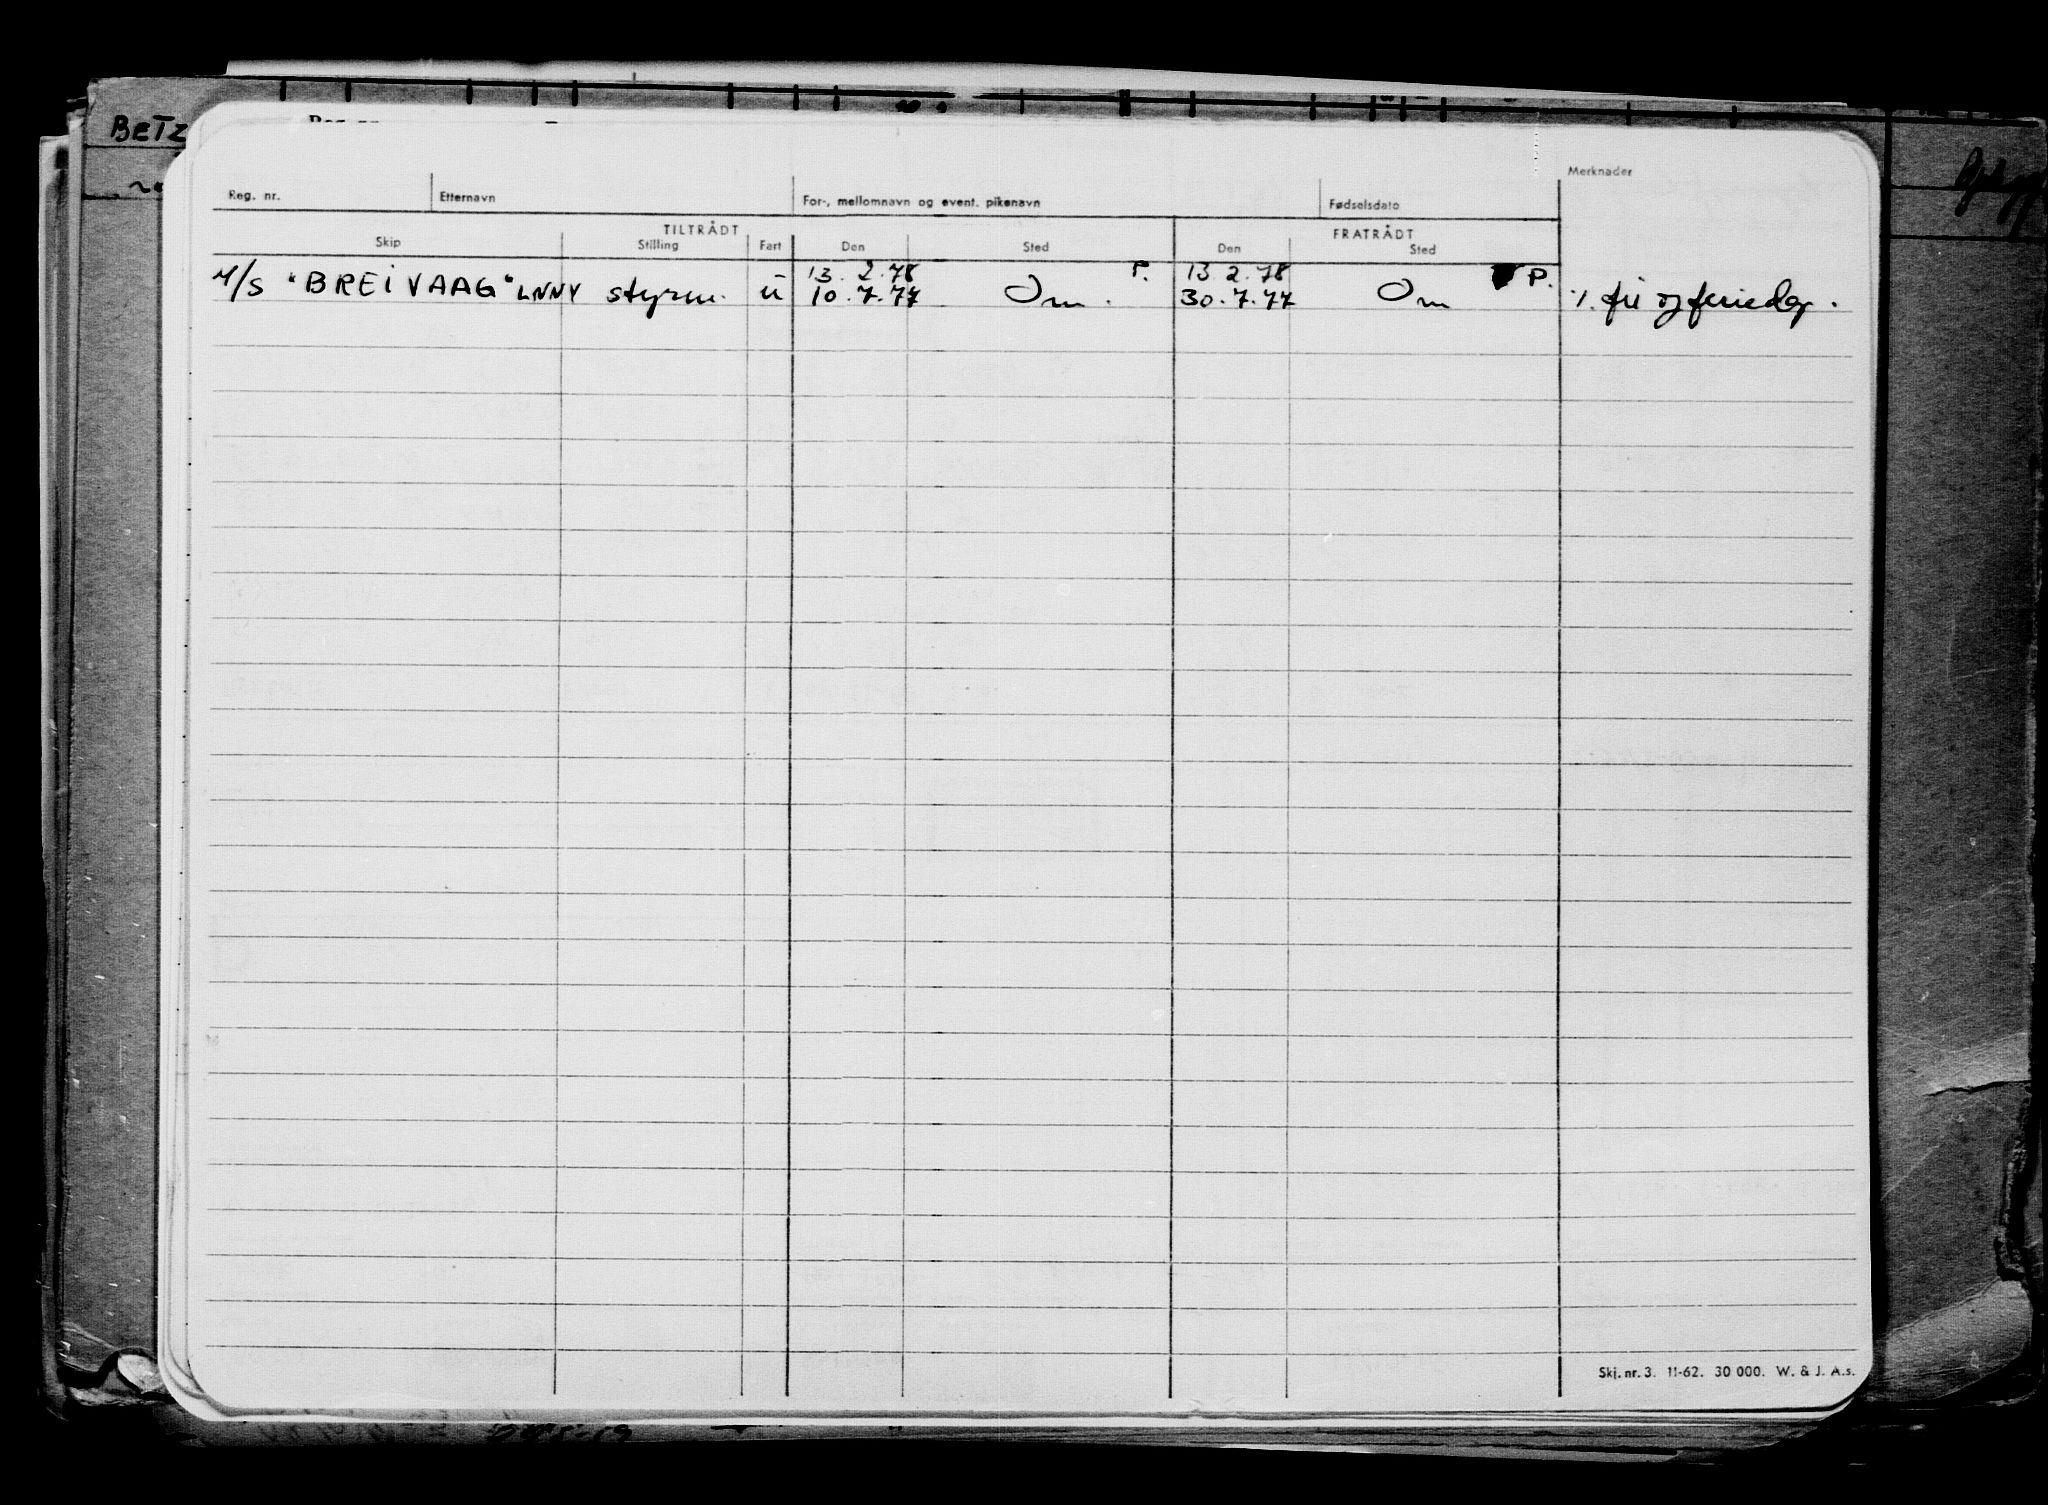 BETZ
Merknader
Reg. nr. Etternavn For-, mellomnavn og event. pikenavn Fødselsdato
TILTRÅDT FRATRÅDT
Skip Stilling Fart Den Sted Den Sted
13. 2. 78 P. 13. 2. 78 P.
M/S "BREIVAAG" LNNY styrm. u 10. 7. 77 Om. 30. 7. 77 Om /. fri og feriedgr.
Skj. nr. 3. 11-62. 30 000. W. & J. A.s.